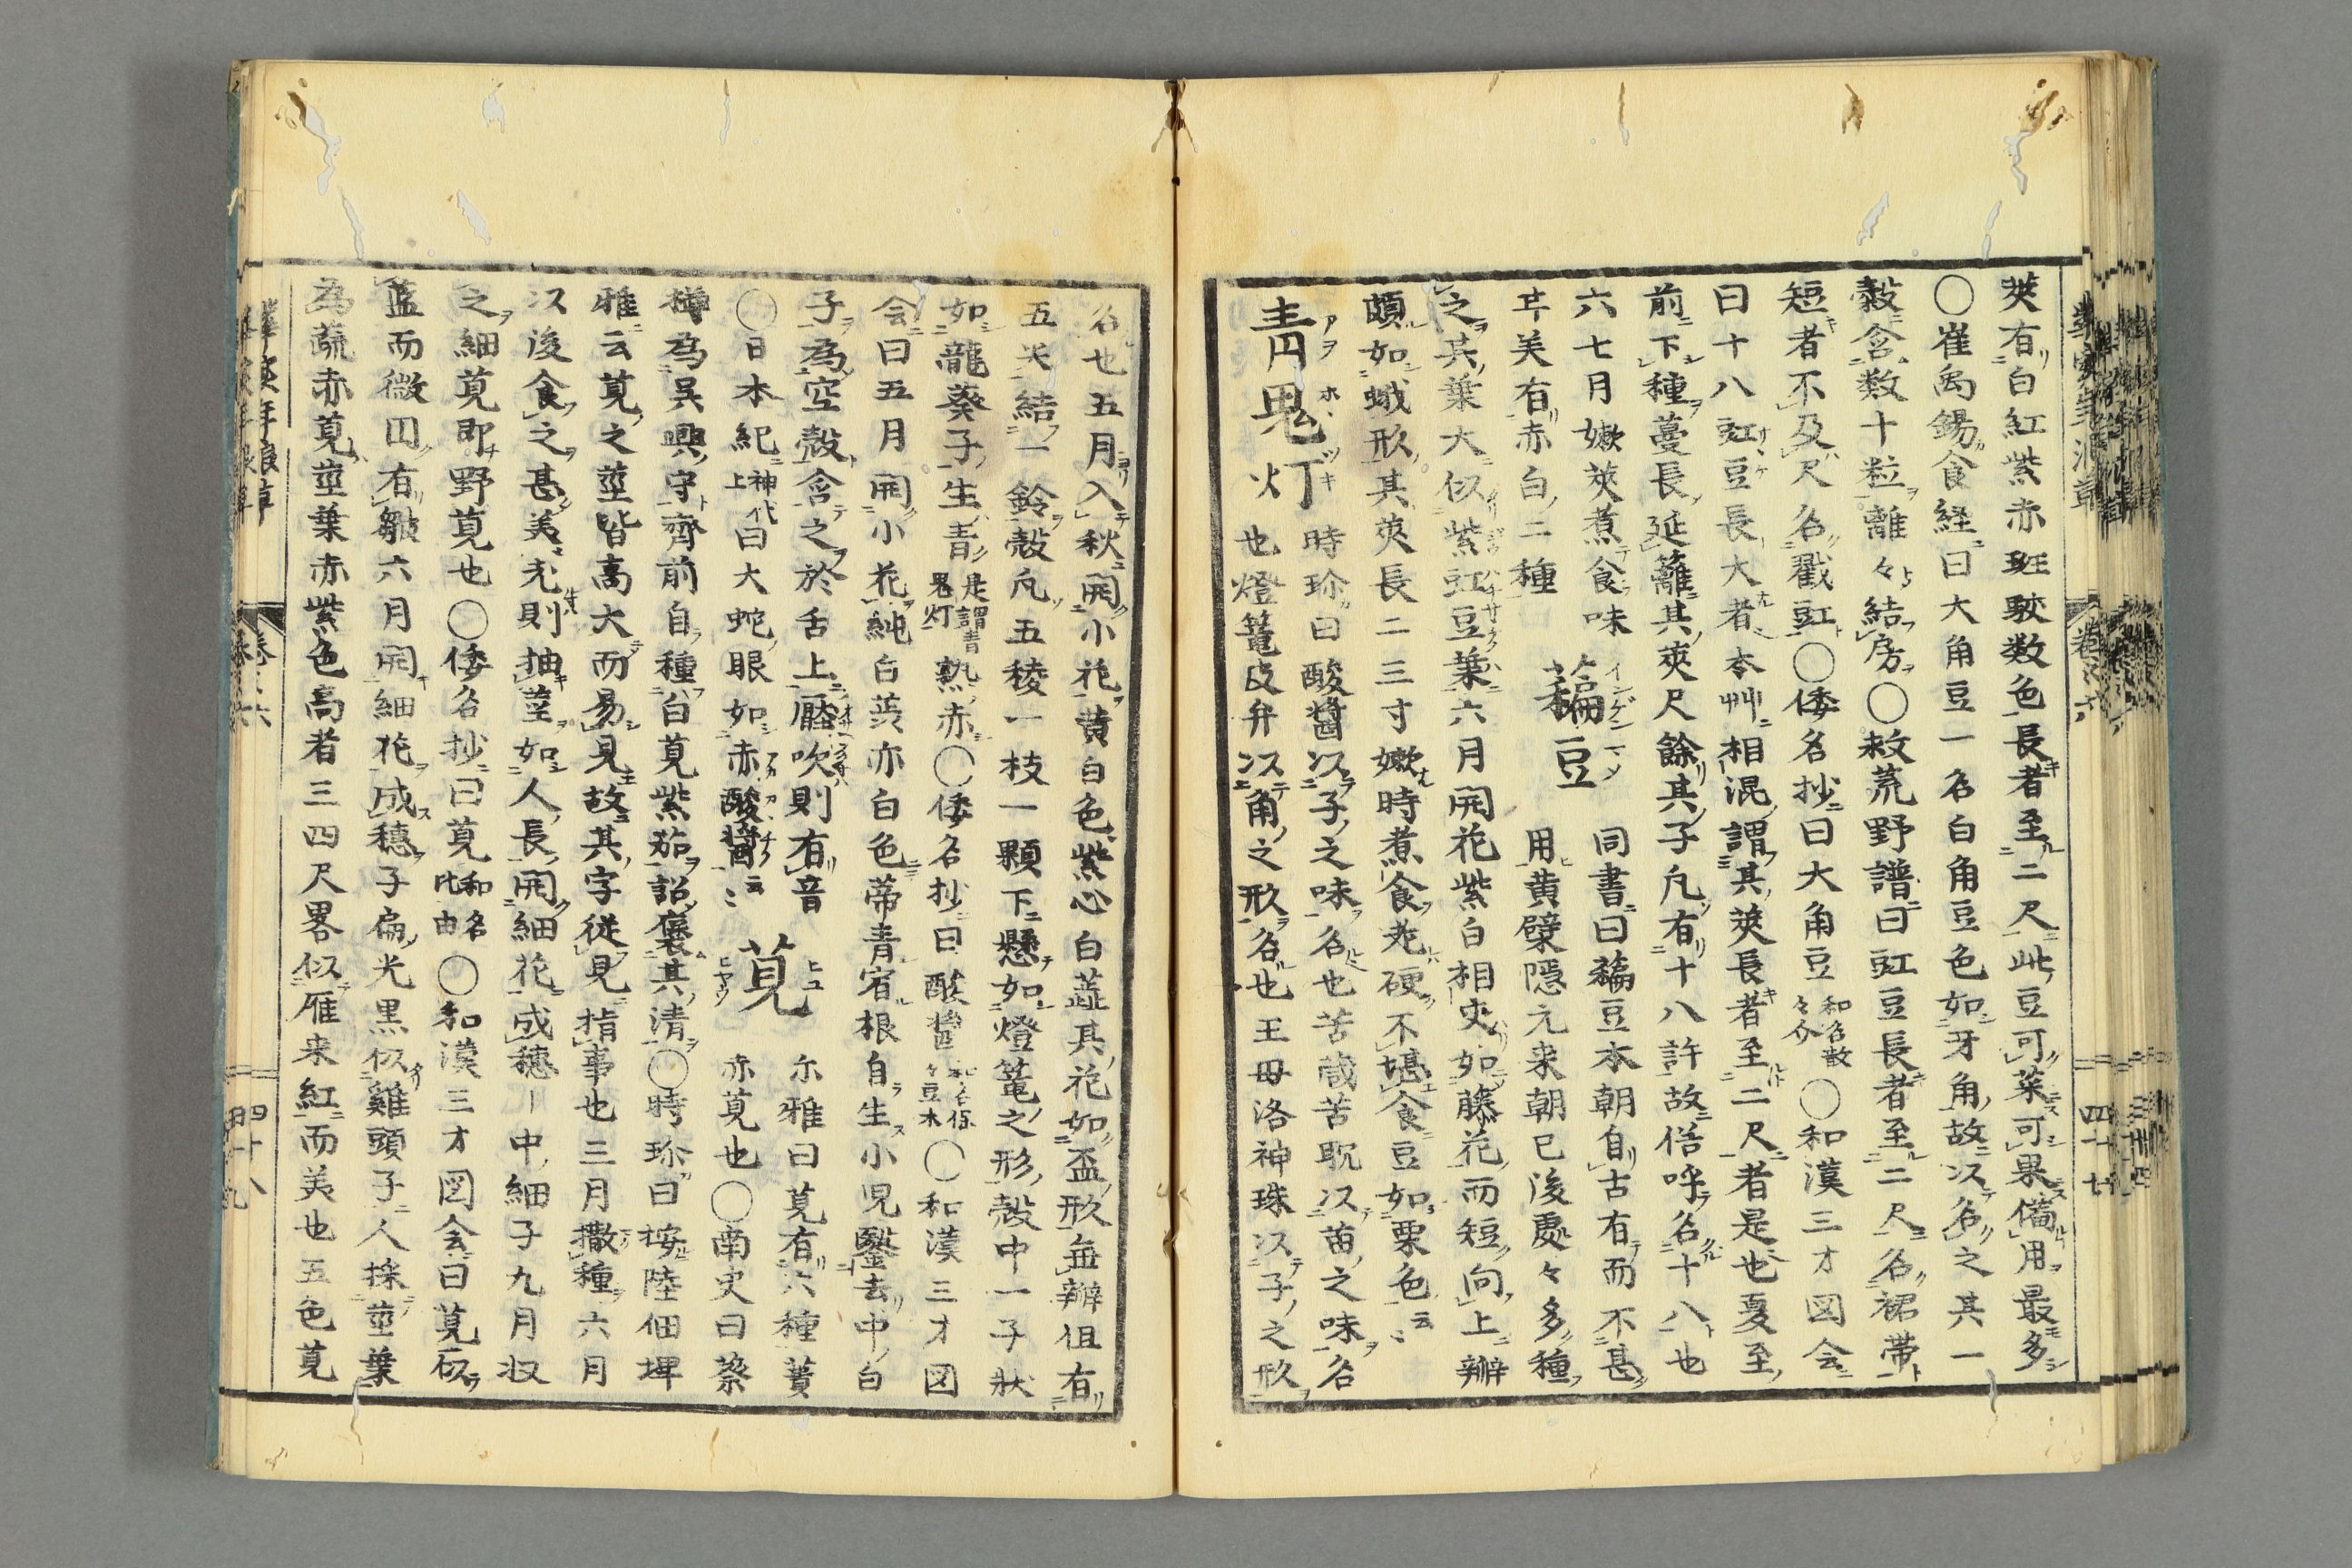 莢有白紅紫赤斑駁数色長者至二尺此豆可菜可果備用最多
〇崔禹錫食経曰大角豆一名白角豆色如牙角故以名之其一
穀含数十粒離々結房〇救荒野譜曰豇豆長者至二尺名裙帯
短者不及尺名戳豇〇倭名抄曰大角豆和名散々介〇和漢三才図会
曰十八豇豆長大者本艸相混謂其莢長者至二尺者是也夏至
前下種蔓長延籬其莢尺餘其子凡有十八許故俗呼名十八也
六七月嫩莢煮食味
〓美有赤白二種
藊豆
同書曰藊豆本朝自古有而不甚
用黄檗隠元来朝已後處々多種
之其葉大似紫豇豆葉六月開花紫白相交如藤花而短向上瓣
頗如蛾形其莢長二三寸嫩時煮食老硬不堪食豆如栗色云〻
青鬼灯
時珍曰酸醤以子之味名也苦葴苦耽以苗之味名
也燈篭皮弁以角之形名也王母洛神珠以子之形
名也五月入秋開小花黄白色紫心白蕋其花如盃形無瓣但有
五尖結一鈴殻凡五稜一枝一顆下懸如燈篭之形殻中一子状
如龍葵子生青是謂青鬼灯熟赤〇倭名抄曰酸醤〇和漢三才図
会曰五月開小花純白蕋亦白色蒂青宿根自生小児鑿去中白
子為空殻含之於舌上壓吹則有音
〇日本紀神代上曰大蛇眼如赤酸醤云〻
莧
尓雅曰莧有六種蕢
赤莧也〇南史曰蔡
樽為呉興守齊前自種白莧紫茄詔褒其清〇時珍曰按陸佃埤
雅云莧之莖皆高大而易見故其字従見指事也三月撒種六月
以後食之甚美老則抽莖如人長開細花成穂〻中細子九月収
之細莧即野莧也〇倭名抄曰莧和名比由〇和漢三才図会曰莧似
藍而微団有皺六月開細花成穂子扁光黒似雞頭子人採莖葉
為蔬赤莧莖葉赤紫色高者三四尺畧似雁来紅而美也五色莧
巻之六
四十七
四十八